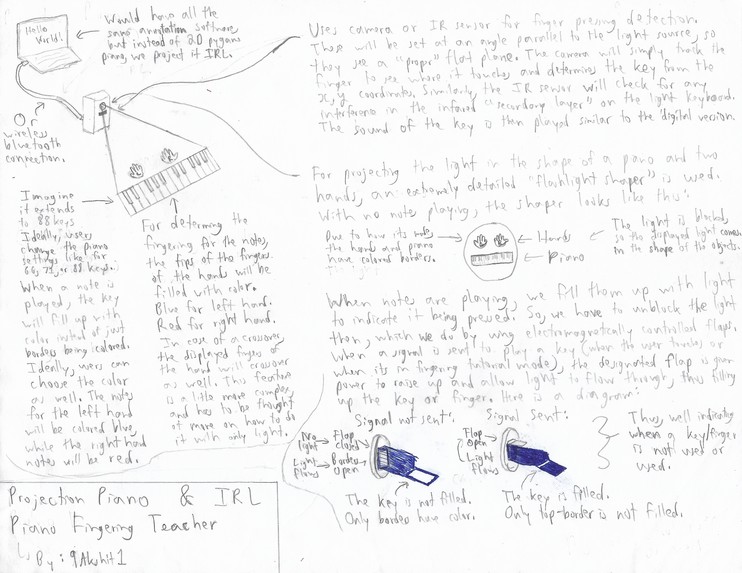 Hello
World!
Would have all the
same annotation software,
but instead of 2D pygame
piano, we project it IRL.
Or
wireless
bluetooth
connection.
Imagine
it extends
to 88 keys
Ideally, users
change the piano
settings like for
66, 72, or 88 keys.
When a note is
played, the key
will fill up with
color instead of just
borders being colored.
Ideally, users can
choose the color
as well. The notes
for the left hand
will be colored blue,
while the right hand
notes will be red.
For determing the
fingering for the notes,
the tips of the fingers
of the hands will be
filled with color.
Blue for left hand.
Red for right hand.
In case of a crossover,
the displayed fingers of
the hand will crossover
as well. This feature
is a little more complex,
and has to be thought
of more on how to do
it with only light.
Projection Piano & IRL
Piano Fingering Teacher
By: 9Akshit1
Uses camera or IR sensor for finger pressing detection.
These will be set at an angle parallel to the light source, so
they see a "proper" flat plane. The camera will simply track the
finger to see where it touches and determines the key from the
x, y coordinates. Similarly, the IR sensor will check for any
interference in the infrared "secondary layer" on the light keyboard.
The sound of the key is then played similar to the digital version.
For projecting the light in the shape of a piano and two
hands, an extremely detailed "flashlight shaper" is used.
With no note playing, the shaper looks like this:
Due to how its made
the hands and piano
have colored borders.
Hands
Piano
The light is blocked,
so the displayed light comes
in the shape of the objects.
When notes are playing, we fill them up with light
to indicate it being pressed. So, we have to unblock the light
then, which we do by using electromagnetically controlled flaps.
When a signal is sent to play a key (when the user touches or
when its in fingering tutorial mode), the designated flap is given
power to raise up and allow light to flow through, thus filling
up the key or finger. Here is a diagram:
Signal not sent:
No light
Flap closed
Light flows
Border open
The key is not filled.
Only borders have color.
Signal sent:
Flap Open
Light Flows
The key is filled.
Only top-border is not filled.
Thus, well indicating
when a key/finger
is not used or
used.